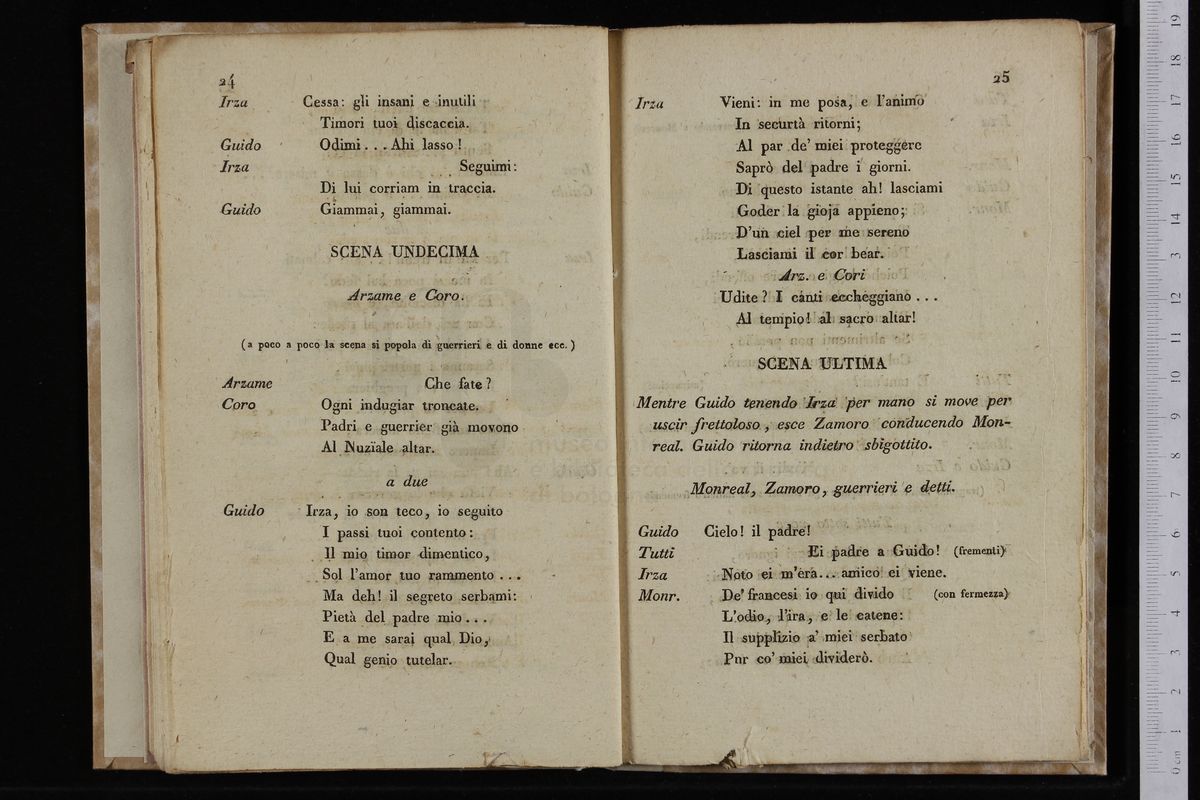 24
Irza Cessa: gli insani e inutili
Timori tuoi discaccia.
Guido Odimi... Ahi lasso!
Irza Seguimi:
Di lui corriam in traccia.
Guido Giammai, giammai.
SCENA UNDECIMA
Arzame e Coro.
(a poco a poco la scena si popola di guerrieri e di donne ecc.)
Arzame Che fate?
Coro Ogni indugiar troncate.
Padri e guerrier già movono
Al Nuzïale altar.
a due
Guido Irza, io son teco, io seguito
I passi tuoi contento:
Il mio timor dimentico,
Sol l'amor tuo rammento...
Ma deh! il segreto serbami:
Pietà del padre mio...
E a me sarai qual Dio,
Qual genio tutelar.
25
Irza Vieni: in me posa, e l'animo
In securtà ritorni;
Al par de' miei proteggere
Saprò del padre i giorni.
Di questo istante ah! lasciami
Goder la gioja appieno;
D'un ciel per me sereno
Lasciami il cor bear.
Arz. e Cori
Udite? I canti eccheggiano...
Al tempio! al sacro altar!
SCENA ULTIMA
Mentre Guido tenendo Irza per mano si move per
uscir frettoloso, esce Zamoro conducendo Mon-
real. Guido ritorna indietro sbigottito.
Monreal, Zamoro, guerrieri e detti.
Guido Cielo! il padre!
Tutti Ei padre a Guido! (frementi)
Irza Noto ei m'era... amico ei viene.
Monr. De' francesi io qui divido (con fermezza)
L'odio, l'ira, e le catene:
Il supplizio a' miei serbato
Pnr co' miei dividerò.
0 cm 1 2 3 4 5 6 7 8 9 10 11 12 13 14 15 16 17 18 19